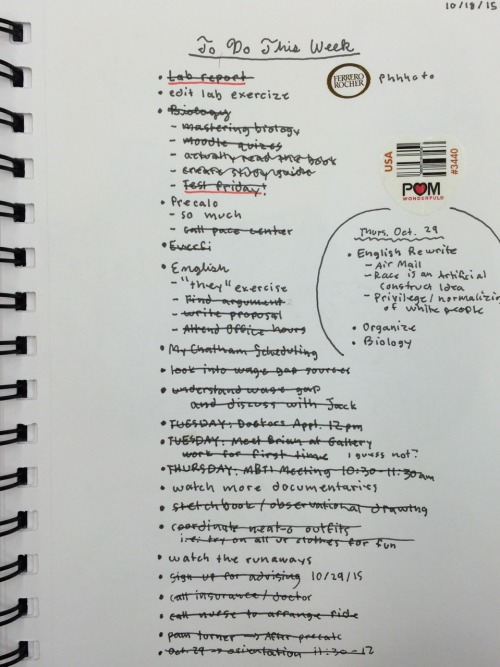 10/18/15
To Do This Week
• Lab report
FERRERO
ROCHER
phhhoto
• edit lab exercize
• Biology
- mastering biology
- moodle quizes
- actually read the book
- create study guide
- Test Friday!
USA
#3440
POM
WONDERFUL®
• Precalc
- so much
- call pace center
•
• English
- "they" exercise
- Find argument
- write proposal
- Attend Office hours
Thurs. Oct. 29
• English Rewrite
- Air Mail
- Race is an Artificial
construct Idea
- Privilege/normalizing
of white people
• Organize
• Biology
• My Chatham Scheduling
• look into wage gap sources
• understand wage gap
and discuss with Jack
• TUESDAY: Doctors Appt. 12pm
• TUESDAY: Meet Brian at Gallery
work for first time I guess not?
• THURSDAY: MBTI Meeting 10:30-11:30am
• watch more documentaries
• sketchbook/observational drawing
• coordinate neat-o outfits
i.e. try on all ur clothes for fun
• watch the runaways
• sign up for advising 10/29/15
• call insurance/doctor
• call nurse to arrange ride
• pam turner → After precalc
• Oct 29 → orientation 11:30-12